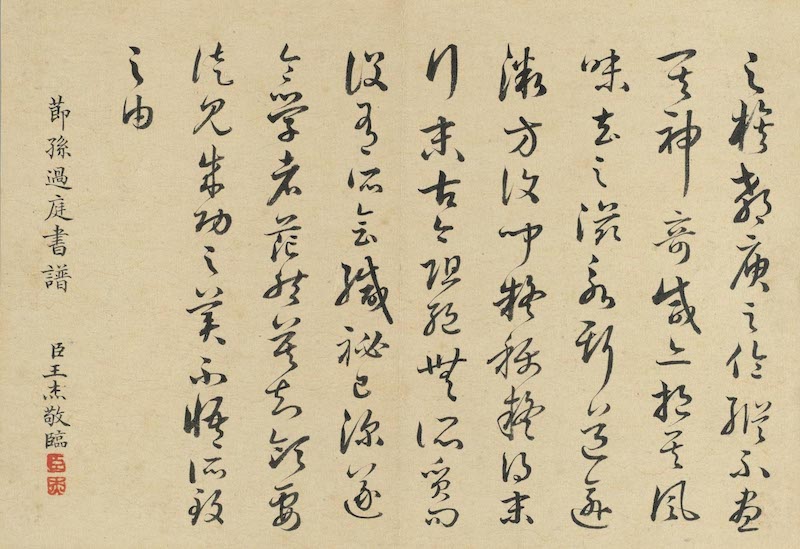 之族郗庾之倫縱不盡
其神奇咸亦挹其風
味去之滋永斯道愈
微方復聞疑稱疑得末
行末古今阻絕無所質問
設有所會緘祕已深遂
令學者茫然莫知領要
徒見成功之美不悟所致
之由
莭孫過庭書譜
臣王杰敬臨